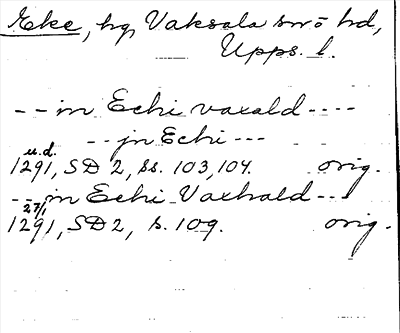 Eke, hg, Vaksala sn o hd,
Upps. l.
-- in Echi vaxald ----
-- in Echi ---
u.d.
1291, SD 2, ss. 103, 104. orig.
--- in Echi Vaxhald ---
27/1
1291, SD 2, s. 109. orig.